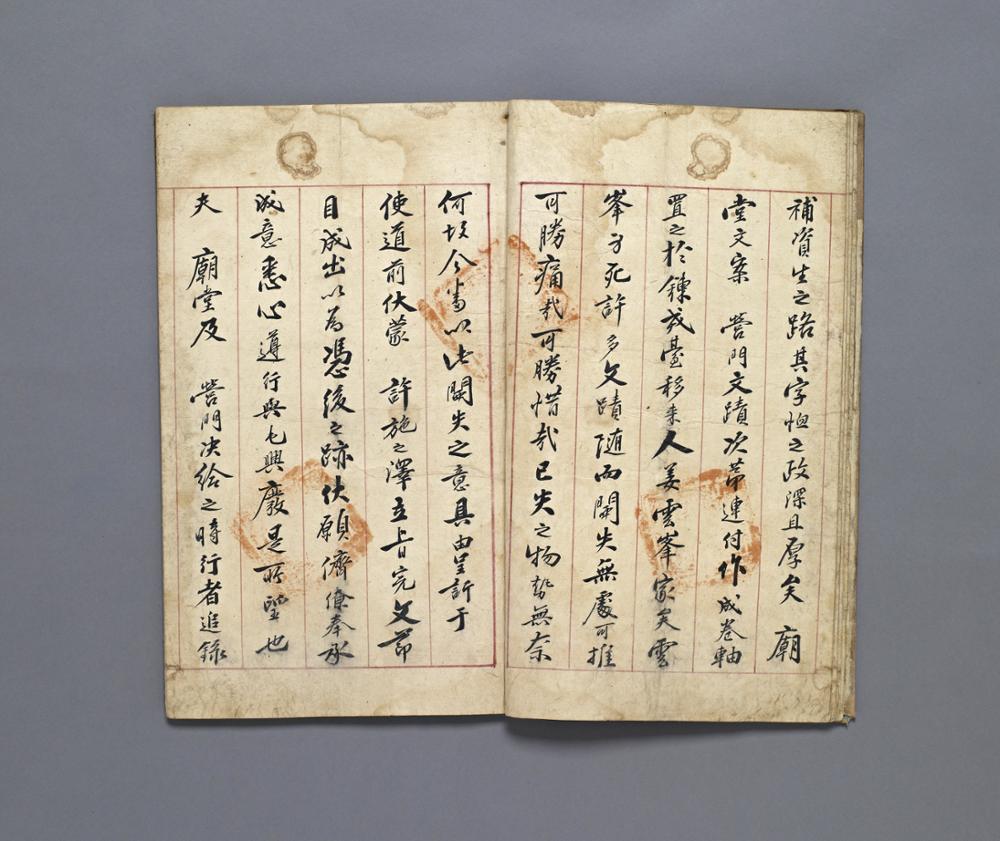 補資生之路其字恤之政深且厚矣 廟
堂文案 營門文蹟次第連付作成卷軸
置之於鍊武臺移來人姜雲峯家矣雲
峯身死許多文蹟隨而闌失無處可推
可勝痛哉可勝惜哉已失之物勢無奈
何故今玆以此闌失之意具由呈訴于
使道前伏蒙 許施之澤立旨完文節
目成出以為憑後之跡伏願儕僚奉承
誠意悉心遵行與之興廢是所望也
夫 廟堂及 營門决給之時行者追錄